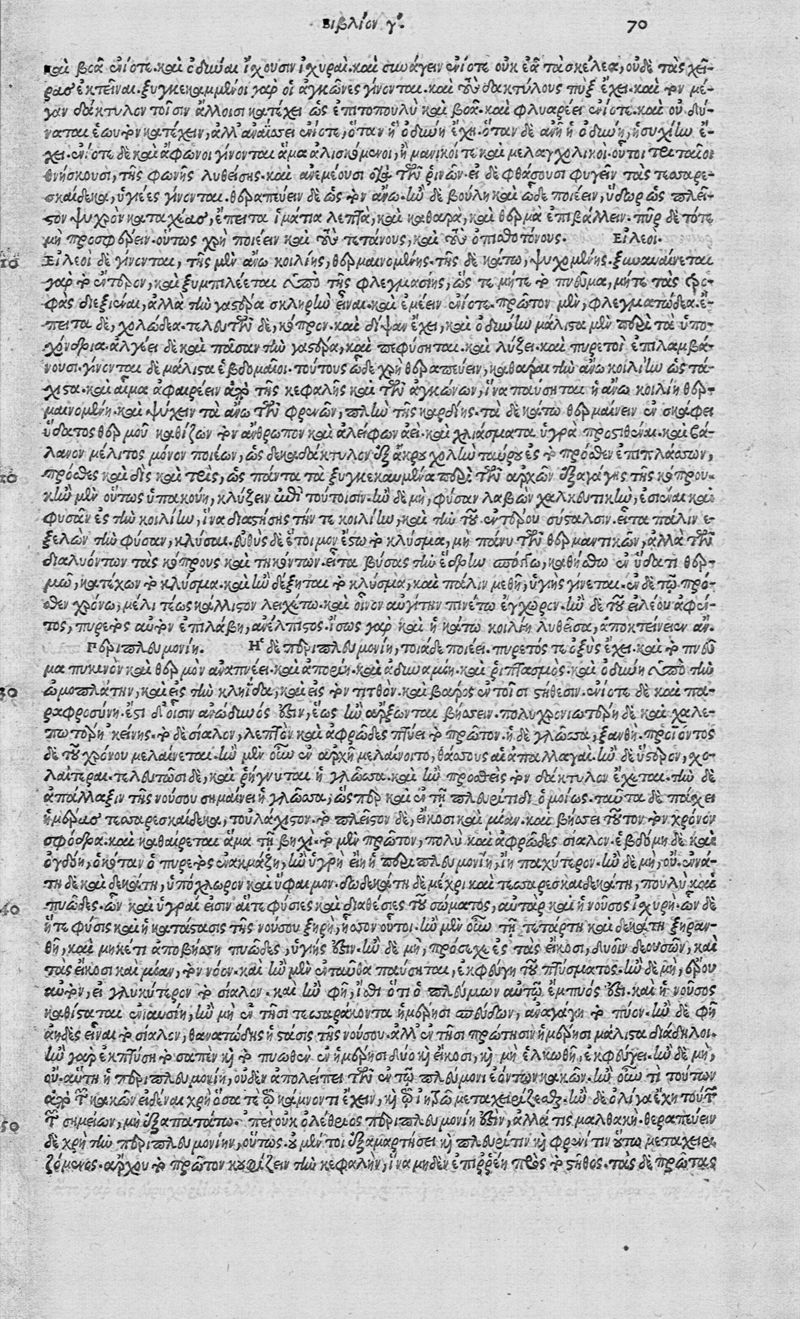 Βιβλίον γ'. 70
καὶ βοᾶ ἐνίοτε. καὶ ὀδύναι ἴχουσιν ἰχυραὶ. καὶ συνάγειν ἐνίοτε οὐκ ἐᾶ τὰ σκέλεα, οὐδὲ τὰς χεῖ-
ρας ἐκτεῖναι. ξυγκεκαμμένοι γὰρ οἱ ἀγκῶνες γίνονται. καὶ τοὺς δακτύλους πὺξ ἔχει. καὶ τὸν μέ-
γαν δάκτυλον τοῖσιν ἄλλοισι κατέχει ὡς ἐπιτοπουλὺ καὶ βοᾶ. καὶ φλυαρέει ἐνίοτε. καὶ οὐ δύ-
ναται ἑωυτὸν κατέχειν, ἀλλ' ἀναΐσσει ἐνίοτε, ὅταν ἡ ὀδύνη ἔχῃ. ὅταν δὲ ἀνῇ ἡ ὀδύνη, ἡσυχίην ἔ-
χει. ἐνίοτε δὲ καὶ ἄφωνοι γίνονται ἅμα ἁλισκόμενοι, ἢ μανικοί τε καὶ μελαγχολικοί. οὗτοι τριταῖοι
θνήσκουσι, τῆς φωνῆς λυθείσης. καὶ ἀνεμέουσι διὰ τῶν ῥινῶν. εἰ δὲ φθάσουσι φυγεῖν τὰς τεσσαρε-
σκαίδεκα, ὑγιέες γίνονται. θεραπεύειν δὲ ὡς τὸν ἄνω. ἢν δὲ βούλῃ καὶ ὧδε ποιέειν, ὕδωρ ὡς πλεῖ-
στον ψυχρὸν καταχέας, ἔπειτα ἱμάτια λεπτὰ, καὶ καθαρὰ, καὶ θερμὰ ἐπιβάλλειν. πῦρ δὲ τότε
μὴ προσφέρειν. οὕτως χρὴ ποιέειν καὶ τοὺς τετάνους, καὶ τοὺς ὀπισθοτόνους. Εἰλεοί.
10 Εἰλεοὶ δὲ γίνονται, τῆς μὲν ἄνω κοιλίης, θερμαινομένης. τῆς δὲ κάτω, ψυχομένης. ξυναυαίνεται
γὰρ τὸ ἔντερον, καὶ ξυμπιλέεται ὑπὸ τῆς φλεγμασίης, ὥς τε μήτε τὸ πνεῦμα, μήτε τὰς τρο-
φὰς διεξιέναι, ἀλλὰ τὴν γαστέρα σκληρὴν εἶναι. καὶ ἐμέειν ἐνίοτε. πρῶτον μὲν, φλεγματώδεα. ἔ-
πειτα δὲ, χολώδεα. τελευτῶν δὲ, κόπρον. καὶ δίψαν ἔχει, καὶ ὀδύνην μάλιστα μὲν περὶ τὰ ὑπο-
χόνδρια. ἀλγέει δὲ καὶ πᾶσαν τὴν γαστέρα, καὶ πεφύσηται. καὶ λύζει. καὶ πυρετοὶ ἐπιλαμβά-
νουσι. γίνονται δὲ μάλιστα ἑβδομαῖοι. τούτους ὧδε χρὴ θεραπεύειν, καθῆραι τὴν ἄνω κοιλίην ὡς τά-
χιστα. καὶ αἷμα ἀφαιρέειν ἀπὸ τῆς κεφαλῆς καὶ τῶν ἀγκώνων, ἵνα παύσηται ἡ ἄνω κοιλίη θερ-
μαινομένη. καὶ ψύχειν τὰ ἄνω τῶν φρενῶν, πλὴν τῆς καρδίης. τὰ δὲ κάτω θερμαίνειν ἐν σκάφει
ὕδατος θερμοῦ καθίζων τὸν ἄνθρωπον καὶ ἀλείφων ἀεί. καὶ χλιάσματα ὑγρὰ προστιθέναι. καὶ βά-
λανον μέλιτος μόνον ποιέων, ὡς δεκαδάκτυλον ἐξ ἄκρου χολὴν ταύρου ἐς τὸ πρόσθεν ἐπιπλάσσων,
20 πρόσθες καὶ δὶς καὶ τρὶς, ὡς πάντα τὰ ξυγκεκαυμένα περὶ τὸν ἀρχὸν ἐξαγάγῃς τῆς κόπρου.
κἢν μὲν οὕτως ὑπακούῃ, κλύζειν ἐπὶ τούτοισιν. ἢν δὲ μὴ, φύσαν λαβὼν χαλκευτικὴν, ἐσιέναι καὶ
φυσᾶν ἐς τὴν κοιλίην, ἵνα διαστήσῃς τήν τε κοιλίην, καὶ τὴν τοῦ ἐντέρου σύστασιν. εἶτα πάλιν ἐ-
ξελὼν τὴν φύσαν, κλύσαι. εὐθὺς δὲ ἕτοιμον ἔστω τὸ κλύσμα, μὴ πάνυ τῶν θερμαντικῶν, ἀλλὰ τῶν
διαλυόντων τὰς κόπρους καὶ τηκόντων. εἶτα βύσας τὴν ἕδρην σπόγγῳ, καθήσθω ἐν ὕδατι θερ-
μῷ, κατέχων τὸ κλύσμα. καὶ ἢν δέξηται τὸ κλύσμα, καὶ πάλιν μεθῇ, ὑγιὴς γίνεται. ἐν δὲ τῷ πρό-
σθεν χρόνῳ, μέλι τε ὡς κάλλιστον λειχέτω. καὶ οἶνον αὐγίτην πινέτω ἔγχωρον. ἢν δὲ τοῦ εἰλεοῦ ἀφέν-
τος, πυρετὸς αὐτὸν ἐπιλάβῃ, ἀνέλπιστος. ἴσως γὰρ καὶ ἡ κάτω κοιλίη λυθεῖσα, ἀποκτείνειεν ἄν.
Περιπλευμονίη. Ἡ δὲ περιπλευμονίη, τοιάδε ποιέει. πυρετός τε ὀξὺς ἔχει. καὶ τὸ πνεῦ
μα πυκινὸν καὶ θερμὸν ἀναπνέει. καὶ ἀπορίη. καὶ ἀδυναμίη. καὶ ῥιπτασμός. καὶ ὀδύνη ὑπὸ τὴν
30 ὠμοπλάτην, καὶ εἰς τὴν κληῖδα, καὶ εἰς τὸν τιτθόν. καὶ βάρος ἐν τοῖσι στήθεσιν. ἐνίοτε δὲ καὶ πα-
ραφροσύνη. ἔστι δ' οἷσιν ἀνώδυνός ἐστιν, ἕως ἢν ἄρξωνται βήσσειν. πολυχρονιωτέρη δὲ καὶ χαλε-
πωτέρη κείνης. τὸ δὲ σίαλον, λεπτὸν καὶ ἀφρῶδες πτύει τὸ πρῶτον. ἡ δὲ γλῶσσα, ξανθή. προϊόντος
δὲ τοῦ χρόνου μελαίνεται. ἢν μὲν οὖν ἐν ἀρχῇ μελαίνοιτο, θάσσους αἱ ἀπαλλαγαί. ἢν δὲ ὕστερον, σχο-
λαίτεραι. τελευτῶσι δὲ, καὶ ῥήγνυται ἡ γλῶσσα. καὶ ἢν προσθεὶς τὸν δάκτυλον ἔχεται. τὴν δὲ
ἀπάλλαξιν τῆς νούσου σημαίνει ἡ γλῶσσα, ὥσπερ καὶ ἐν τῇ πλευρίτιδι ὁμοίως. ταῦτα δὲ πάσχει
ἡμέρας τεσσαρεσκαίδεκα, τοὐλάχιστον. τὸ πλεῖστον δὲ, εἴκοσι καὶ μίαν. καὶ βήσσει τοῦτον τὸν χρόνον
σφόδρα. καὶ καθαίρεται ἅμα τῇ βηχί. τὸ μὲν πρῶτον, πολὺ καὶ ἀφρῶδες σίαλον. ἑβδόμῃ δὲ καὶ
ὀγδόῃ, ὁκόταν ὁ πυρετὸς ἐνακμάζῃ, ἢν ὑγρὴ ἔῃ ἡ περιπλευμονίη, παχύτερον. ἢν δὲ μὴ, οὔ. ἐννά-
τῃ δὲ καὶ δεκάτῃ, ὑπόχλωρον καὶ ὕφαιμον. δωδεκάτῃ δὲ μέχρι καὶ τεσσαρεσκαιδεκάτῃ, πουλὺ καὶ
40 πυῶδες. ὧν καὶ ὑγραί εἰσιν αἵ τε φύσιες καὶ διαθέσιες τοῦ σώματος, αὐτὰρ καὶ ἡ νοῦσος ἰσχυρή. ὧν δὲ
ἥ τε φύσις καὶ ἡ κατάστασις τῆς νούσου ξηρὴ, ἧσσον οὗτοι. ἢν μὲν οὖν τῇ τετάρτῃ καὶ δεκάτῃ ξηραν-
θῇ, καὶ μηκέτι ἀποβήσσῃ πυῶδες, ὑγιής ἐστιν. ἢν δὲ μὴ, πρόσεχε ἐς τὰς εἴκοσι, δυοῖν δεουσῶν, καὶ
τὰς εἴκοσι καὶ μίαν, τὸν νόον. καὶ ἢν μὲν ἐνταῦθα παύσηται, ἐκφεύγει τοῦ πτύσματος. ἢν δὲ μὴ, ἐρέου
αὐτὸν, εἰ γλυκύτερον τὸ σίαλον. καὶ ἢν φῇ, ἴσθι ὅτι ὁ πλεύμων αὐτῷ ἔμπυός ἐστι. καὶ ἡ νοῦσος
καθίσταται ἐνιαυσίη, ἢν μὴ ἐν τῇσι τεσσαράκοντα ἡμέρῃσι σπεύδων, ἀναγάγῃ τὸ πύον. ἢν δὲ φῇ
ἀηδὲς εἶναι τὸ σίαλον, θανατώδης ἡ στάσις τῆς νούσου. ἀλλ' ἐν τῇσι πρώτῃσιν ἡμέρῃσι μάλιστα διάδηλοι.
ἢν γὰρ ἐκπτύσῃ τὸ σαπὲν καὶ τὸ πυωθὲν ἐν ἡμέρῃσι δύο καὶ εἴκοσι, καὶ μὴ ἑλκωθῇ, ἐκφεύγει. ἢν δὲ μὴ,
οὔ. αὕτη ἡ περιπλευμονίη, οὐδὲν ἀπολείπει τῶν ἐν τῷ πλεύμονι ἐόντων κακῶν. ἢν οὖν τι τούτων
ἀπὸ τῶν κακῶν εἰδέναι χρὴ ὅσα τε τῷ κάμνοντι ἔχειν, καὶ τῷ ἰητρῷ μεταχειρίζεσθαι. ἢν δὲ ὀλίγα ἔχῃ τούτων
50 τῶν σημείων, μὴ ἐξαπατάτω. ἐπεὶ οὐκ ὀλέθριος περιπλευμονίη ἐστὶν, ἀλλά τις μαλθακή. θεραπεύειν
δὲ χρὴ τὴν περιπλευμονίην, οὕτως. οὐ μέν τοι ἐξαμαρτήσει καὶ πλευρῖτιν καὶ φρενῖτιν οὕτω μεταχειρι-
ζόμενος. ἄρχου τὸ πρῶτον κουφίζειν τὴν κεφαλὴν, ἵνα μηδὲν ἐπιρρέῃ πρὸς τὸ στῆθος. τὰς δὲ πρώτας